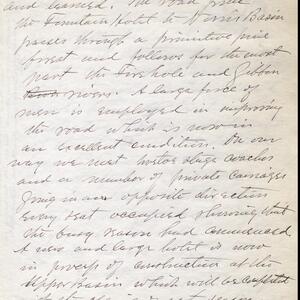 and learned. The road from
the Fountain Hotel to Norris Basin
passes through a primitive pine
forest and follows for the most
part the Firehole and Gibbon
rivers. A large force of
men is employed in improving
the road which is now in
an excellent condition. On our
way we met hostos stage coaches
and a number of private carriages
going in an opposite direction
every seat occupied showing that
the busy season had commenced.
A new and large hotel is now
in process of construction at the
Upper Basin which will be completed